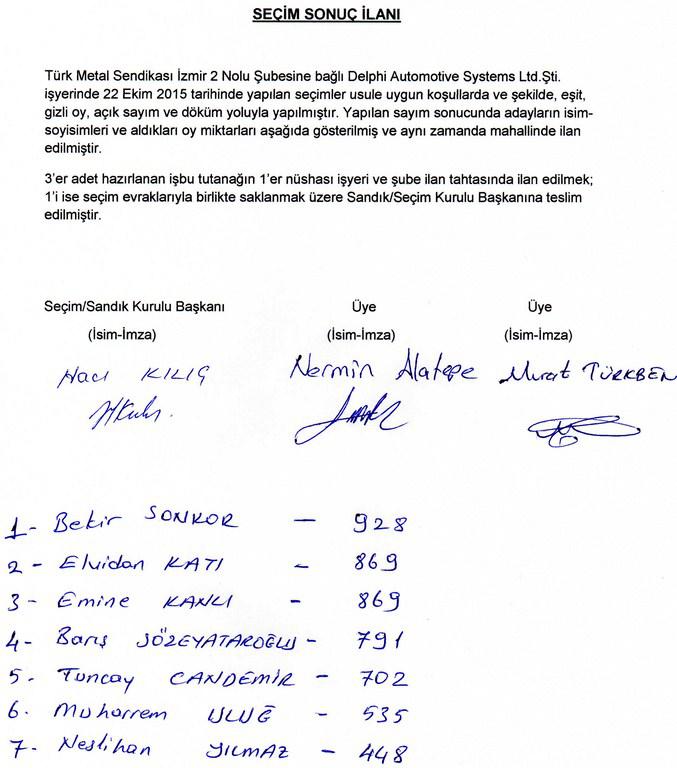 SEÇİM SONUÇ İLANI
Türk Metal Sendikası İzmir 2 Nolu Şubesine bağlı Delphi Automotive Systems Ltd.Şti.
işyerinde 22 Ekim 2015 tarihinde yapılan seçimler usule uygun koşullarda ve şekilde, eşit,
gizli oy, açık sayım ve döküm yoluyla yapılmıştır. Yapılan sayım sonucunda adayların isim-
soyisimleri ve aldıkları oy miktarları aşağıda gösterilmiş ve aynı zamanda mahallinde ilan
edilmiştir.
3'er adet hazırlanan işbu tutanağın 1'er nüshası işyeri ve şube ilan tahtasında ilan edilmek;
1'i ise seçim evraklarıyla birlikte saklanmak üzere Sandık/Seçim Kurulu Başkanına teslim
edilmiştir.
Seçim/Sandık Kurulu Başkanı Üye Üye
(İsim-İmza) (İsim-İmza) (İsim-İmza)
Hacı KILIÇ Nermin Alatepe Murat TÜRKBEN
1- Bekir SONKOR - 928
2- Elvidan KATI - 869
3- Emine KANLI - 869
4- Barış SÖZEYATAROĞLU - 791
5. Tuncay CANDEMİR - 702
6. Muharrem ULUĞ - 535
7- Neslihan YILMAZ - 448